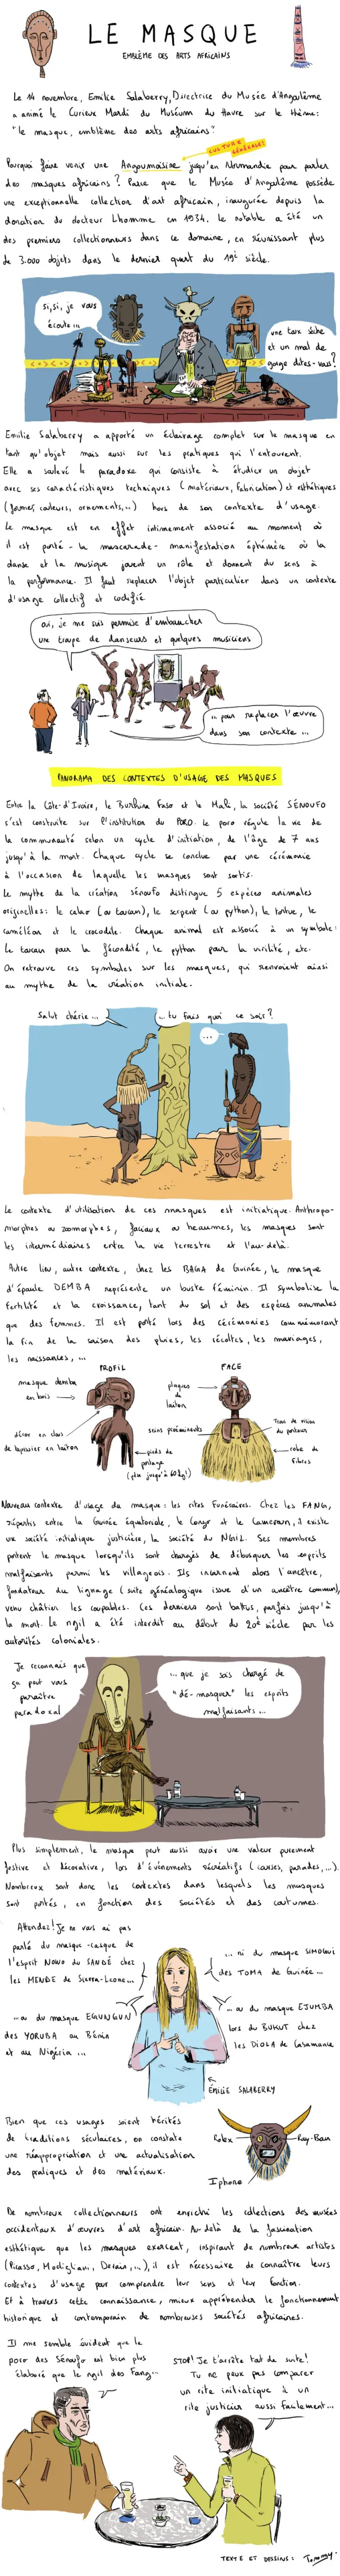 LE MASQUE
EMBLÈME DES ARTS AFRICAINS
Le 14 novembre, Emilie Salaberry, Directrice du Musée d'Angoulême
a animé le Curieux Mardi du Muséum du Havre sur le thème:
"le masque, emblème des arts africains".
CULTURE GÉNÉRALE!
Pourquoi faire venir une Angoumoisine jusqu'en Normandie pour parler
des masques africains? Parce que le Musée d'Angoulême possède
une exceptionnelle collection d'art africain, inaugurée depuis la
donation du docteur Lhomme en 1934. le notable a été un
des premiers collectionneurs dans ce domaine, en réunissant plus
de 3.000 objets dans le dernier quart du 19è siècle.
si, si, je vous
écoute...
une toux sèche
et un mal de
gorge dites-vous?
Emilie Salaberry a apporté un éclairage complet sur le masque en
tant qu'objet mais aussi sur les pratiques qui l'entourent.
Elle a soulevé le paradoxe qui consiste à étudier un objet
avec ses caractéristiques techniques (matériaux, fabrication) et esthétiques
(formes, couleurs, ornements,...) hors de son contexte d'usage.
Le masque est en effet intimement associé au moment où
il est porté - la mascarade - manifestation éphémère où la
danse et la musique jouent un rôle et donnent du sens à
la performance. Il faut replacer l'objet particulier dans un contexte
d'usage collectif et codifié
oui, je me suis permise d'embaucher
une troupe de danseurs et quelques musiciens
... pour replacer l'œuvre
dans son contexte...
PANORAMA DES CONTEXTES D'USAGE DES MASQUES
Entre la Côte-d'Ivoire, le Burkina Faso et le Mali, la société SÉNOUFO
s'est construite sur l'institution du PORO. le poro régule la vie de
la communauté selon un cycle d'initiation, de l'âge de 7 ans
jusqu'à la mort. Chaque cycle se conclue par une cérémonie
à l'occasion de laquelle les masques sont sortis.
Le mythe de la création sénoufo distingue 5 espèces animales
originelles: le calao (ou toucan), le serpent (ou python), la tortue, le
caméléon et le crocodile. Chaque animal est associé à un symbole:
Le toucan pour la fécondité, le python pour la virilité, etc.
On retrouve ces symboles sur les masques, qui renvoient ainsi
au mythe de la création initiale.
Salut chérie...
... tu fais quoi ce soir?
...
Le contexte d'utilisation de ces masques est initiatique. Anthropo-
morphes ou zoomorphes, faciaux ou heaumes, les masques sont
les intermédiaires entre la vie terrestre et l'au-delà.
Autre lieu, autre contexte, chez les BAGA de Guinée, le masque
d'épaule DEMBA représente un buste féminin. Il symbolise la
fertilité et la croissance, tant du sol et des espèces animales
que des femmes. Il est porté lors des cérémonies commémorant
la fin de la saison des pluies, les récoltes, les mariages,
les naissances, ...
PROFIL
FACE
masque demba
en bois
plaques
de
laiton
décor en clous
de tapissier en laiton
seins proéminents
Trous de vision
du porteur
pieds de
portage
(pèse jusqu'à 60kg!)
robe de
fibres
Nouveau contexte d'usage du masque: les rites funéraires. Chez les FANG,
répartis entre la Guinée équatoriale, le Congo et le Cameroun, il existe
une société initiatique justicière, la société du NGIL. Ses membres
portent le masque lorsqu'ils sont chargés de débusquer les esprits
malfaisants parmi les villageois. Ils incarnent alors l'ancêtre,
fondateur du lignage (suite généalogique issue d'un ancêtre commun),
venu châtier les coupables. Ces derniers sont battus, parfois jusqu'à
la mort. Le ngil a été interdit au début du 20è siècle par les
autorités coloniales.
Je reconnais que
ça peut vous
paraître
paradoxal
... que je sois chargé de
"dé-masquer" les esprits
malfaisants...
Plus simplement, le masque peut aussi avoir une valeur purement
festive et décorative, lors d'événements récréatifs (courses, parades,...).
Nombreux sont donc les contextes dans lesquels les masques
sont portés, en fonction des sociétés et des coutumes.
Attendez! Je ne vous ai pas
parlé du masque-casque de
l'esprit NOWO du SANDÉ chez
les MENDE de Sierra-Leone...
... ni du masque SIMOGUI
des TOMA de Guinée...
... ou du masque EGUNGUN
des YORUBA au Bénin
et au Nigéria ...
... ou du masque EJUMBA
lors du BUKUT chez
les DIOLA de Casamance
ÉMILIE SALABERRY
Bien que ces usages soient hérités
de traditions séculaires, on constate
une réappropriation et une actualisation
des pratiques et des matériaux.
Rolex
Ray-Ban
Iphone
De nombreux collectionneurs ont enrichi les collections des musées
occidentaux d'œuvres d'art africain. Au-delà de la fascination
esthétique que les masques exercent, inspirant de nombreux artistes
(Picasso, Modigliani, Derain,...), il est nécessaire de connaître leurs
contextes d'usage pour comprendre leur sens et leur fonction.
Et à travers cette connaissance, mieux appréhender le fonctionnement
historique et contemporain de nombreuses sociétés africaines.
Il me semble évident que le
poro des Sénoufo est bien plus
élaboré que le ngil des Fang...
STOP! Je t'arrête tout de suite!
Tu ne peux pas comparer
un rite initiatique à un
rite justicier aussi facilement...
TEXTE ET DESSINS: Tommy.